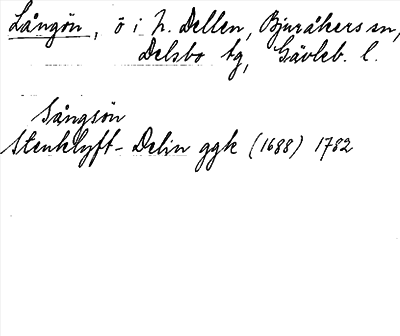 Långön, ö i N. Dellen, Bjuråkers sn,
Delsbo tg, Gävleb. l.
Långsön
Stenklyft-Delin ggk (1688) 1782